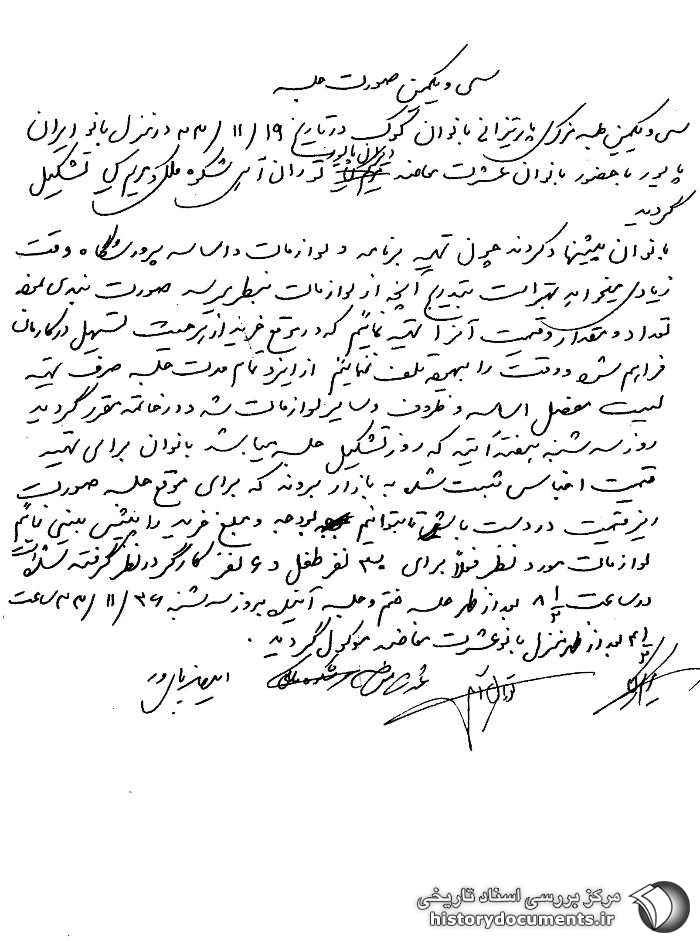 سی و یکمین صورت جلسه
سی و یکمین جلسه مرکزی پارتیزانی بانوان کوک در تاریخ ۱۹/۱۱/۳۳ در منزل بانو ایران
ایران پاپور
پاپور با حضور بانوان عشرت مخاضه توران آسی شکوه ملک و مریم کیا تشکیل
گردید
بانوان پیشنهاد کردند چون تهیه برنامه و لوازمات و اساسه پرورشگاه وقت
زیادی میخواهد بهتر است بتدریج آنچه از لوازمات بنظر میرسد صورت بندی نموده
تعداد و مقدار و قیمت آنرا تهیه نمائیم که در موقع خرید از هر حیث تسهیل در کارمان
فراهم شده و وقت را بیهوده تلف ننمائیم از اینرو تمام مدت جلسه صرف تهیه
لیست مفصل اساسه و ظروف و سایر لوازمات شد و در خاتمه مقرر گردید
روز سه شنبه هفته آتیه که روز تشکیل جلسه میباشد بانوان برای تهیه
قیمت اجناس ثبت شده به بازار بروند که برای موقع جلسه صورت
ریز قیمت در دست باشد تا بتوانیم بودجه و مبلغ خرید را پیش بینی نمائیم
لوازمات مورد نظر فعلاً برای ۳۰ نفر طفل و ۶ نفر کارگر در نظر گرفته شده است
در ساعت ۸ ۱/۲ بعد از ظهر جلسه ختم و جلسه آینده بروز سه شنبه ۲۶/۱۱/۳۳ ساعت
۴ ۱/۲ بعد از ظهر منزل بانو عشرت مخاضه موکول گردید.
توران آسی شکوه ملک ایران پاپور
مرکز بررسی اسناد تاریخی
historydocuments.ir